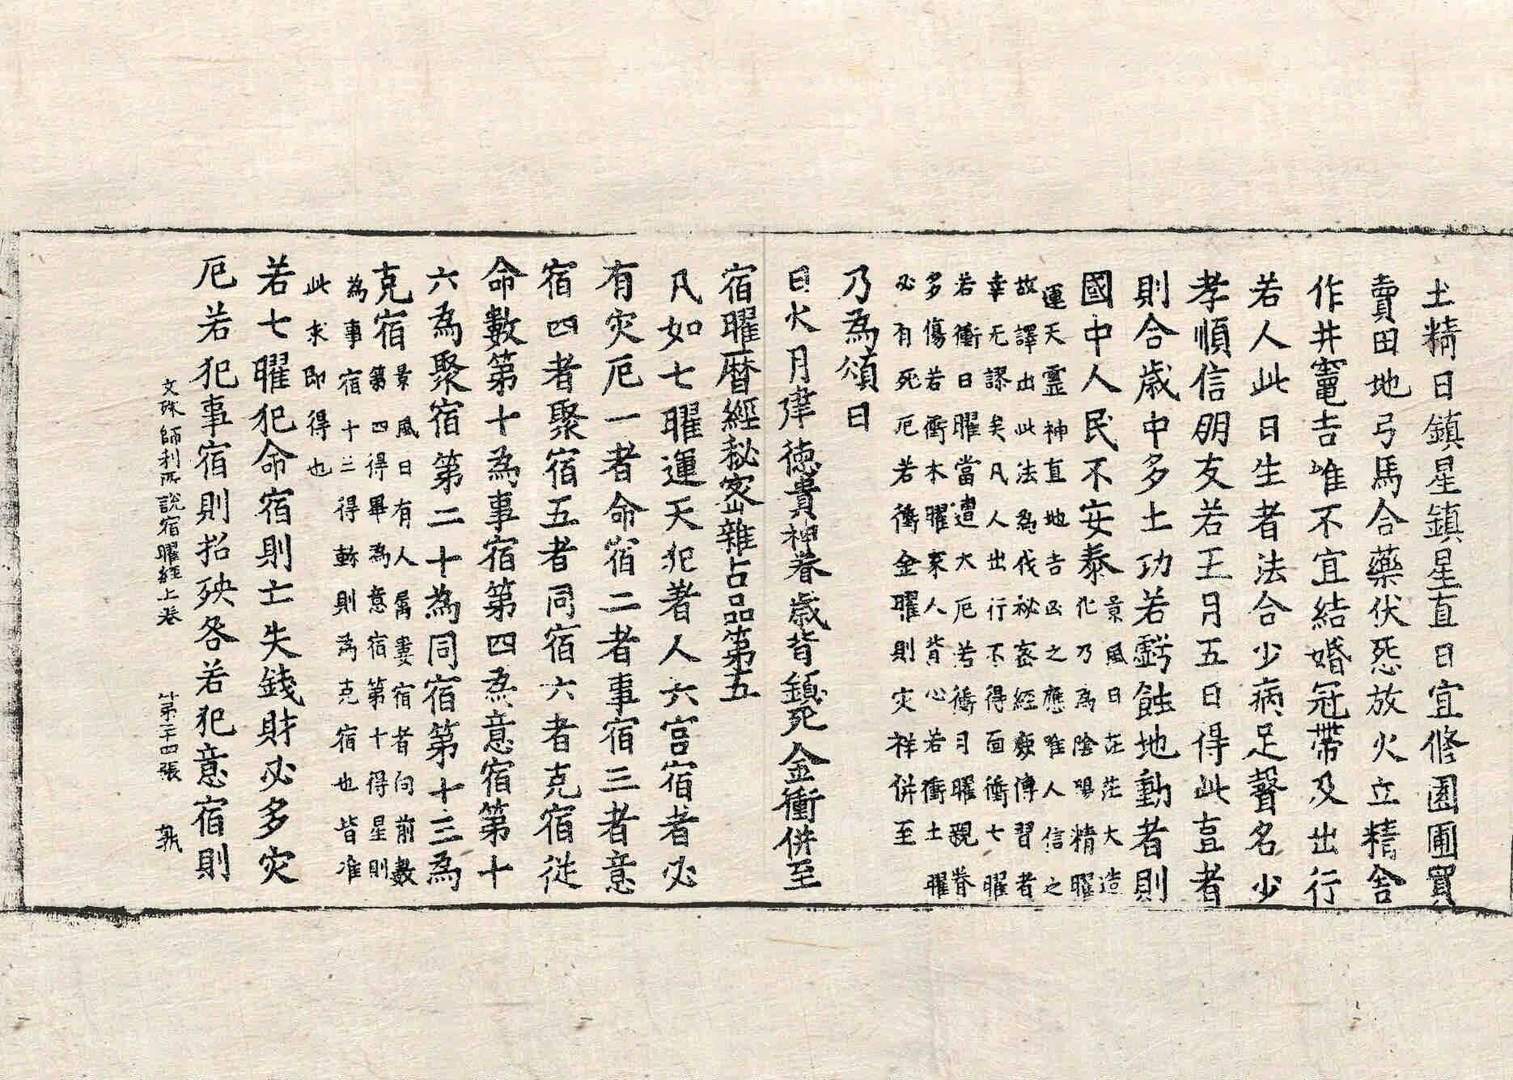 土精日鎮星鎮星直日宜修園圃買
賣田地弓馬合藥伏惡放火立精舍
作井竈吉唯不宜結婚冠帶及出行
若人此日生者法合少病足聲名少
孝順信朋友若五月五日得此直者
則合歲中多土功若虧蝕地動者則
國中人民不安泰
景風日茫茫大造
化乃為陰陽精曜
運天靈神直地吉凶之應唯人信之
故譯出此法為伐祕密經願傳習者
幸无謬矣凡人出行不得面衝七曜
若衝日曜當遭大厄若衝月曜親眷
多傷若衝木曜家人背心若衝土曜
必有死厄若衝金曜則灾祥併至
乃為頌曰
日火月律徳貴神眷歲背鎮死金衝併至
宿曜曆經秘密雜占品第五
凡如七曜運天犯著人六宮宿者必
有灾厄一者命宿二者事宿三者意
宿四者聚宿五者同宿六者克宿從
命數第十為事宿第四為意宿第十
六為聚宿第二十為同宿第十三為
克宿
景風日有人屬婁宿者向前數
第四得畢為意宿第十得星則
為事宿十三得軫則為克宿也皆准
此求即得也
若七曜犯命宿則亡失錢財必多灾
厄若犯事宿則招殃咎若犯意宿則
文殊師利所說宿曜經上卷 第二十四張